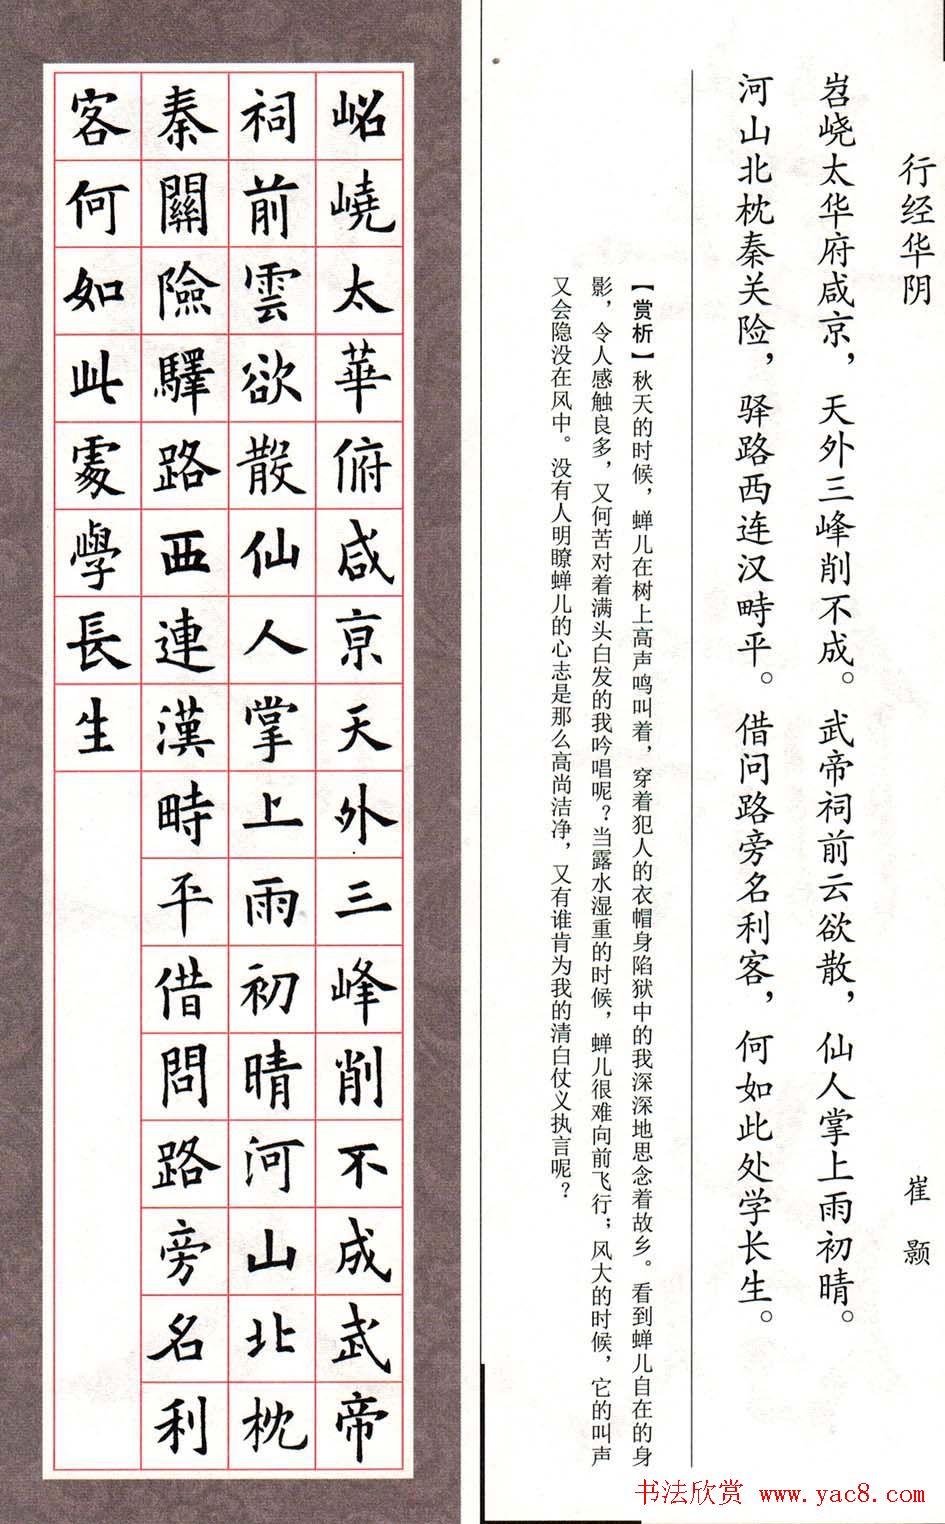 行经华阴
崔颢
岧峣太华府咸京，天外三峰削不成。武帝祠前云欲散，仙人掌上雨初晴。
河山北枕秦关险，驿路西连汉畤平。借问路旁名利客，何如此处学长生。
【赏析】秋天的时候，蝉儿在树上高声鸣叫着，穿着犯人的衣帽身陷狱中的我深深地思念着故乡。看到蝉儿自在的身
影，令人感触良多，又何苦对着满头白发的我吟唱呢？当露水湿重的时候，蝉儿很难向前飞行；风大的时候，它的叫声
又会隐没在风中。没有人明瞭蝉儿的心志是那么高尚洁净，又有谁肯为我的清白仗义执言呢？
岧嶢太華俯咸京天外三峰削不成武帝
祠前雲欲散仙人掌上雨初晴河山北枕
秦關險驛路西連漢畤平借問路旁名利
客何如此處學長生
书法欣赏 www.yac8.com